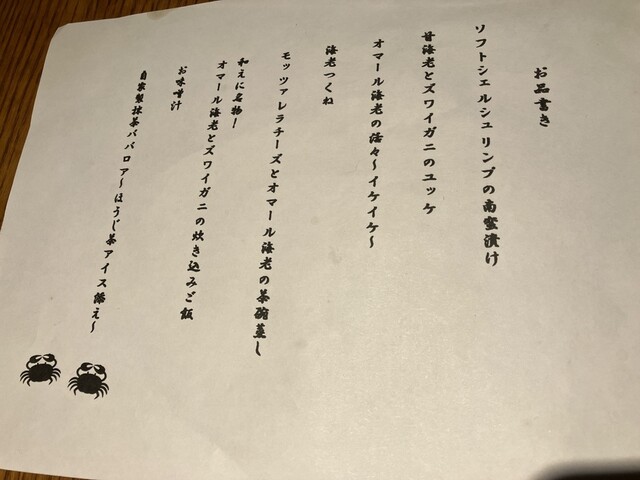 お品書き
ソフトシェルシュリンプの南蛮漬け
甘海老とズワイガニのユッケ
オマール海老の活々～イケイケ～
海老つくね
モッツァレラチーズとオマール海老の茶碗蒸し
和えに名物！
オマール海老とズワイガニの炊き込みご飯
お味噌汁
自家製抹茶ババロア～ほうじ茶アイス添え～